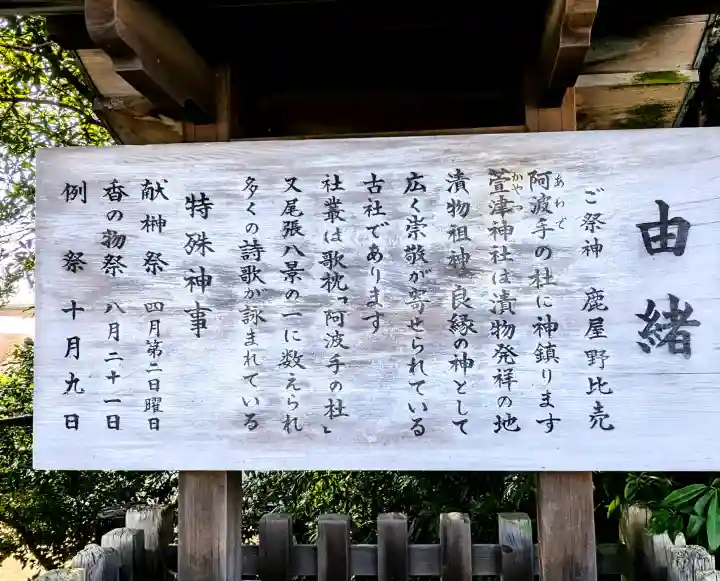 由緒
ご祭神 鹿屋野比売
阿波手の杜に神鎮ります
あわで
萱津神社は漬物発祥の地
かやつ
漬物祖神、良縁の神として
広く崇敬が寄せられている
古社であります
社叢は歌枕「阿波手の杜」と
又尾張八景の一に数えられ
多くの詩歌が詠まれている
特殊神事
献榊祭 四月第二日曜日
香の物祭 八月二十一日
例祭 十月九日